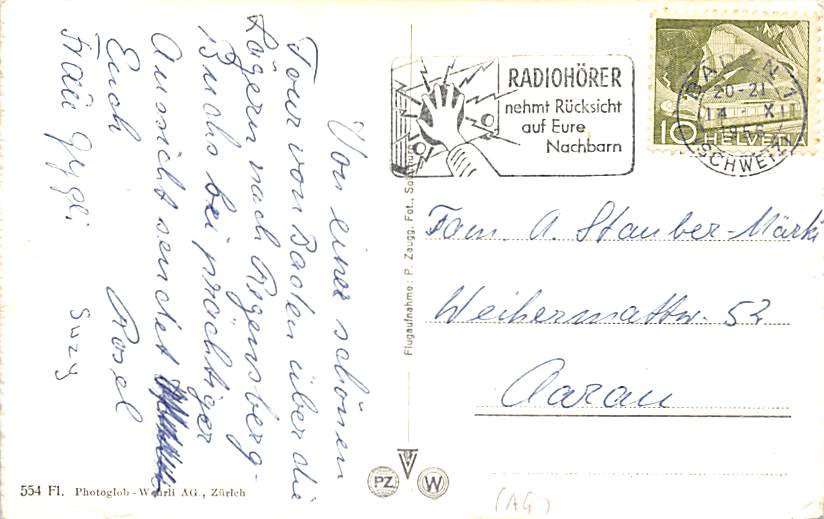 Von einer schönen
Tour von Baden über die
Lägern nach Regensberg-
Buchs bei prächtiger
Aussicht sendet
Euch Rosel
Frau Gygli
Suzy
RADIOHÖRER
nehmt Rücksicht
auf Eure
Nachbarn
BADEN 1
20-21
14 XI
SCHWEIZ
10 HELVETIA
Fam. A. Stauber-Märki
Weihermattw. 52
Aarau
(AG)
Flugaufnahme: P. Zaugg. Fot., Solothurn
PZ W
554 Fl. Photoglob-Wehrli AG., Zürich